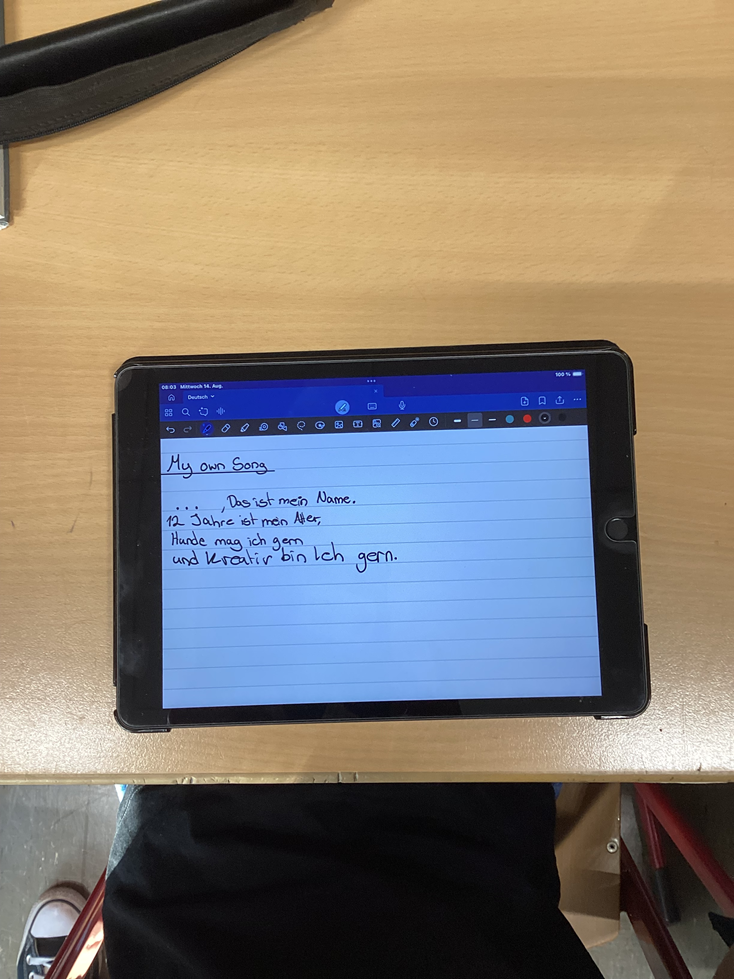 08:03 Mittwoch 14. Aug.
100 %
Deutsch
My own Song
... , Das ist mein Name.
12 Jahre ist mein Alter,
Hunde mag ich gern
und kreativ bin Ich gern.